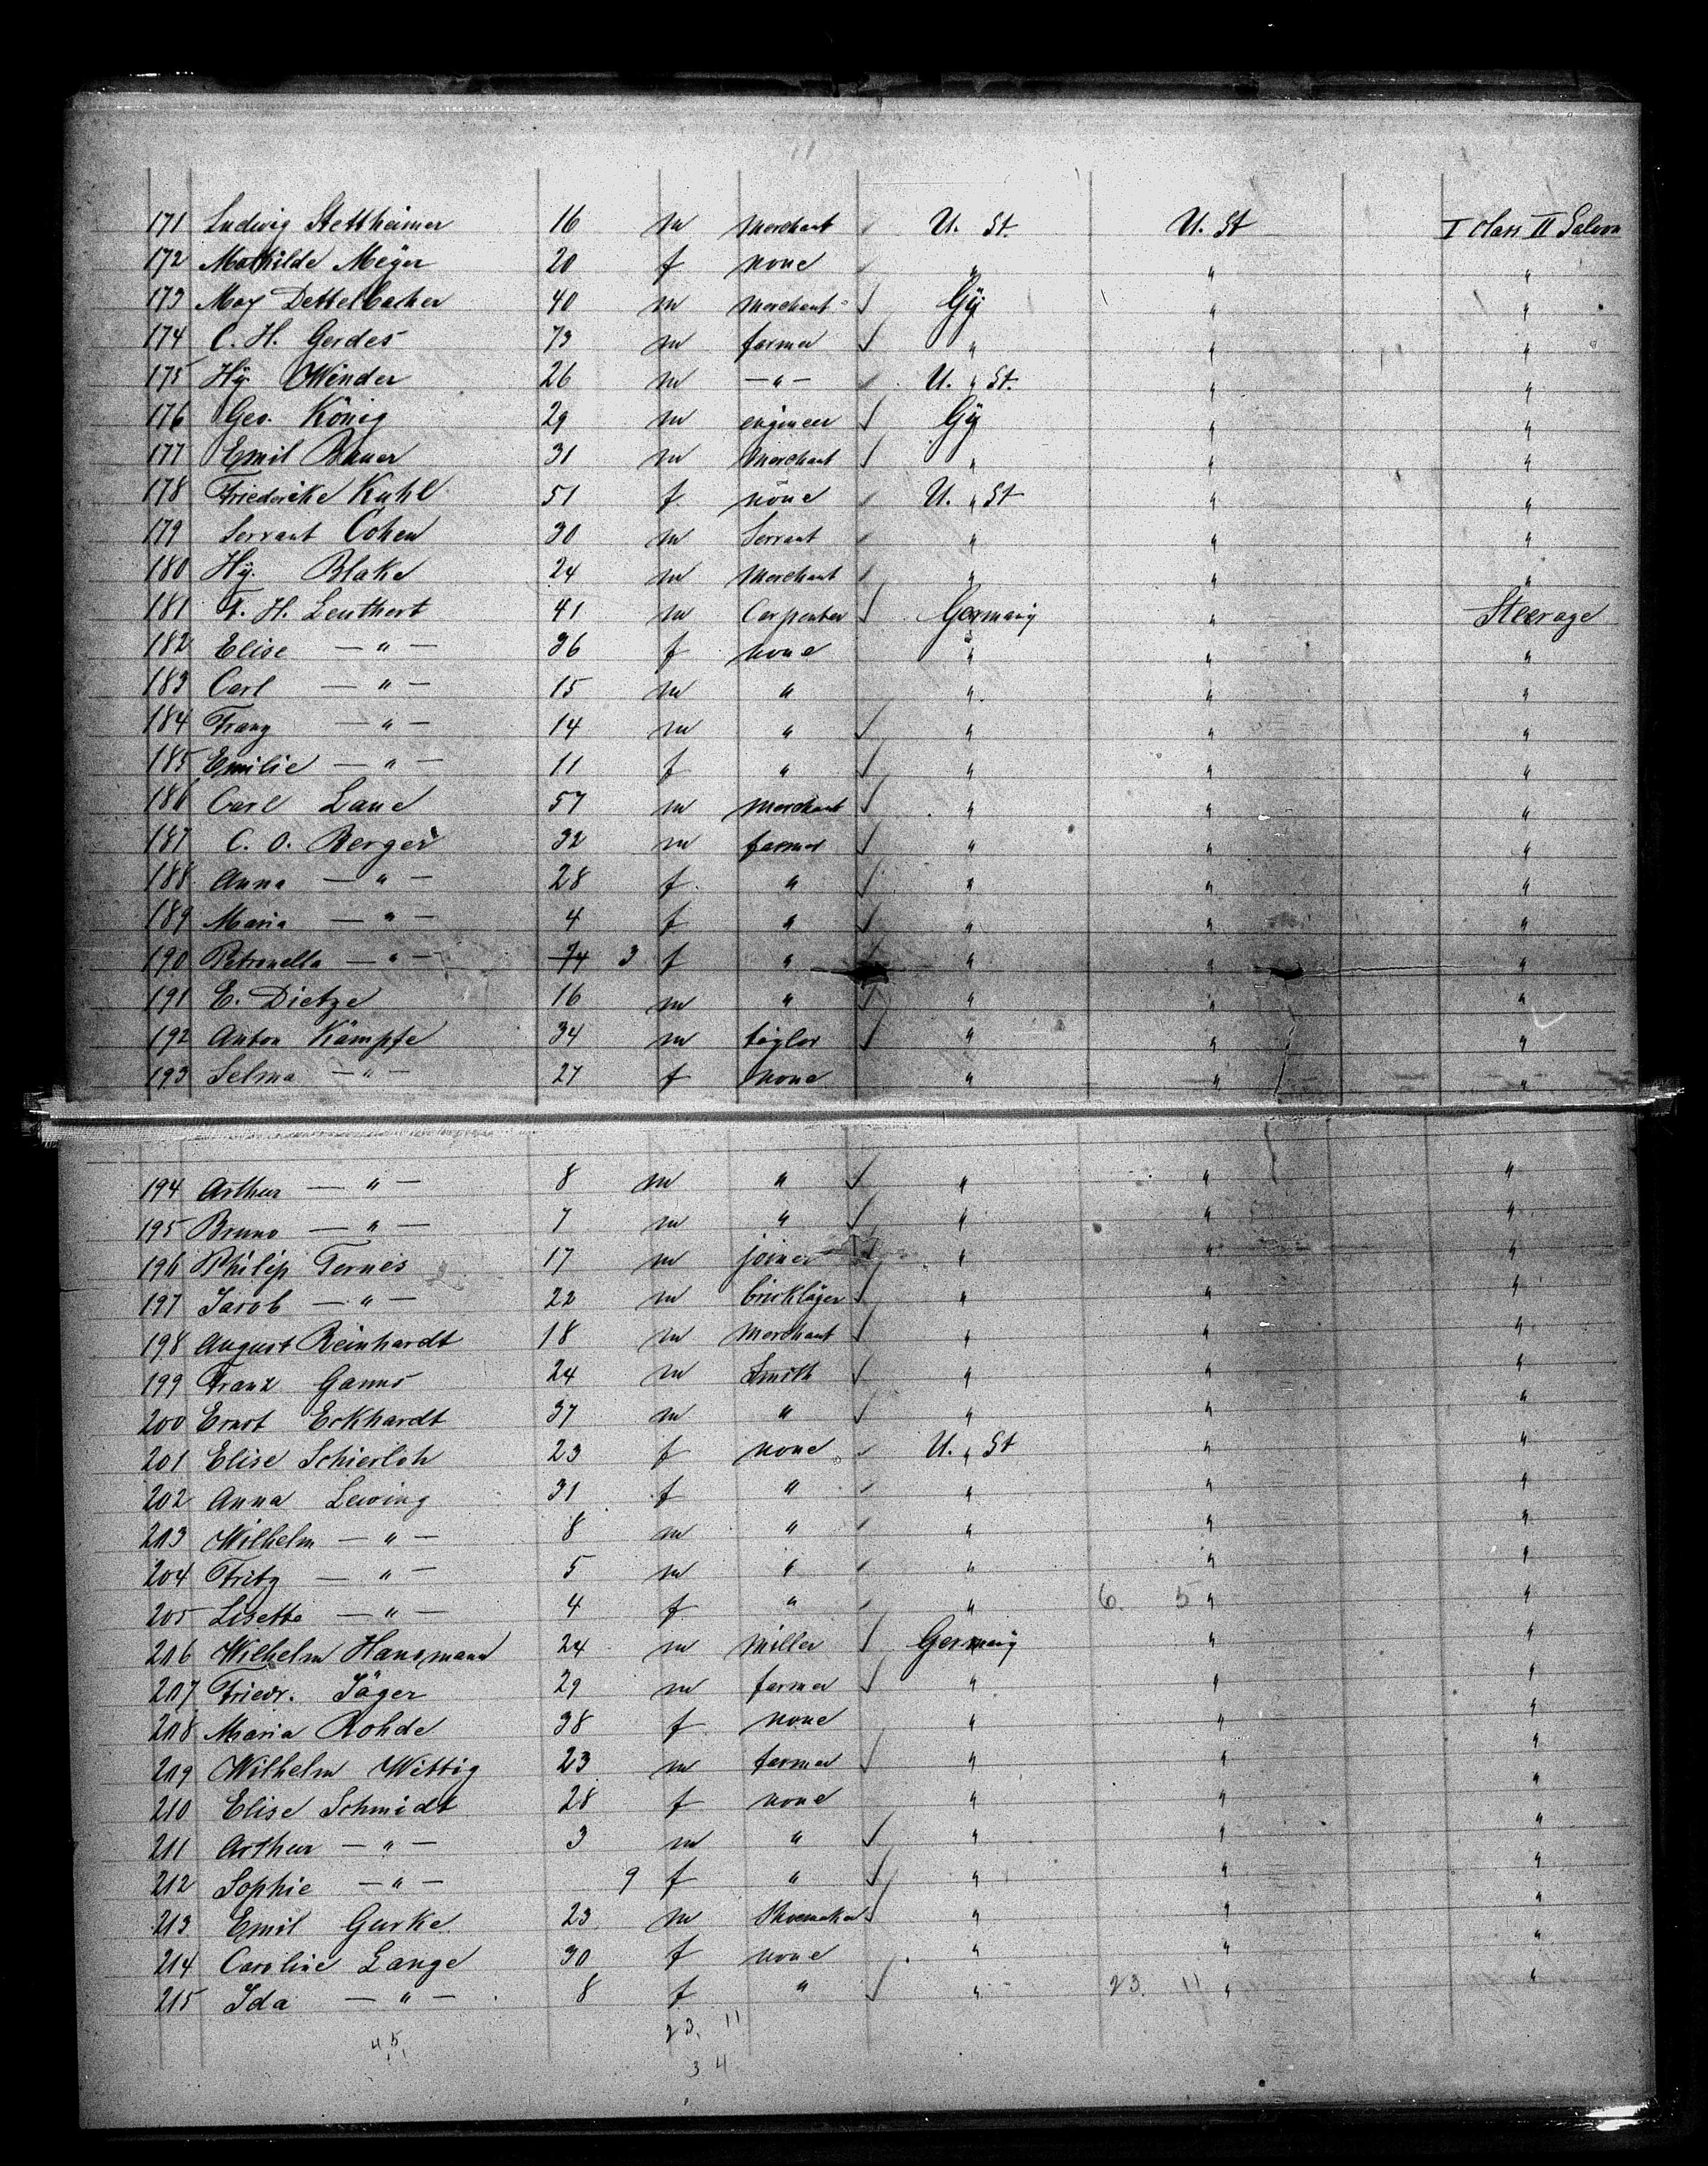 171 Ludwig Stettheimer 16 m Merchant U. St. U. St I class II Saloon
172 Mathilde Meyer 20 f none " " "
173 Max Dettelbacher 40 m Merchant Gy " "
174 C. H. Gerdes 73 m farmer " " "
175 Hy. Winder 26 m —"— U. " St. " "
176 Geo. König 29 m engineer Gy " "
177 Emil Bauer 31 m Merchant " " "
178 Friederike Kuhl 51 f none U. " St " "
179 Servant Cohen 30 m Servant " " "
180 Hy. Blake 24 m Merchant " " "
181 F. H. Leuthert 41 m Carpenter Germany " Steerage
182 Elise —"— 36 f none " " "
183 Carl —"— 15 m " " " "
184 Franz —"— 14 m " " " "
185 Emilie —"— 11 f " " " "
186 Carl Lane 57 m Merchant " " "
187 C. O. Berger 32 m farmer " " "
188 Anna —"— 28 f " " " "
189 Maria —"— 4 f " " " "
190 Petronella —"— 74 3 f " " " "
191 E. Dietze 16 m " " " "
192 Anton Kämpfe 34 m taylor " " "
193 Selma —"— 27 f none " " "
194 Arthur —"— 8 m " " " "
195 Bruno —"— 7 m " " " "
196 Philip Ternes 17 m joiner " " "
197 Jacob —"— 22 m bricklayer " " "
198 August Reinhardt 18 m Merchant " " "
199 Franz Ganns 24 m Smith " " "
200 Ernst Eckhardt 37 m " " " "
201 Elise Schierloh 23 f none U. " St " "
202 Anna Lewing 31 f " " " "
203 Wilhelm —"— 8 m " " " "
204 Fritz —"— 5 m " " " "
205 Lisette —"— 4 f " " 6. 5 " "
206 Wilhelm Hansmann 24 m Miller Germany " "
207 Friedr. Jäger 29 m farmer " " "
208 Maria Rohde 38 f none " " "
209 Wilhelm Wittig 23 m farmer " " "
210 Elise Schmidt 28 f none " " "
211 Arthur —"— 3 m " " " "
212 Sophie —"— 9 f " " " "
213 Emil Gurke 23 m Shoemaker " " "
214 Caroline Lange 30 f none " " "
215 Ida —"— 8 f " " 23. 11 " "
45 23. 11
34